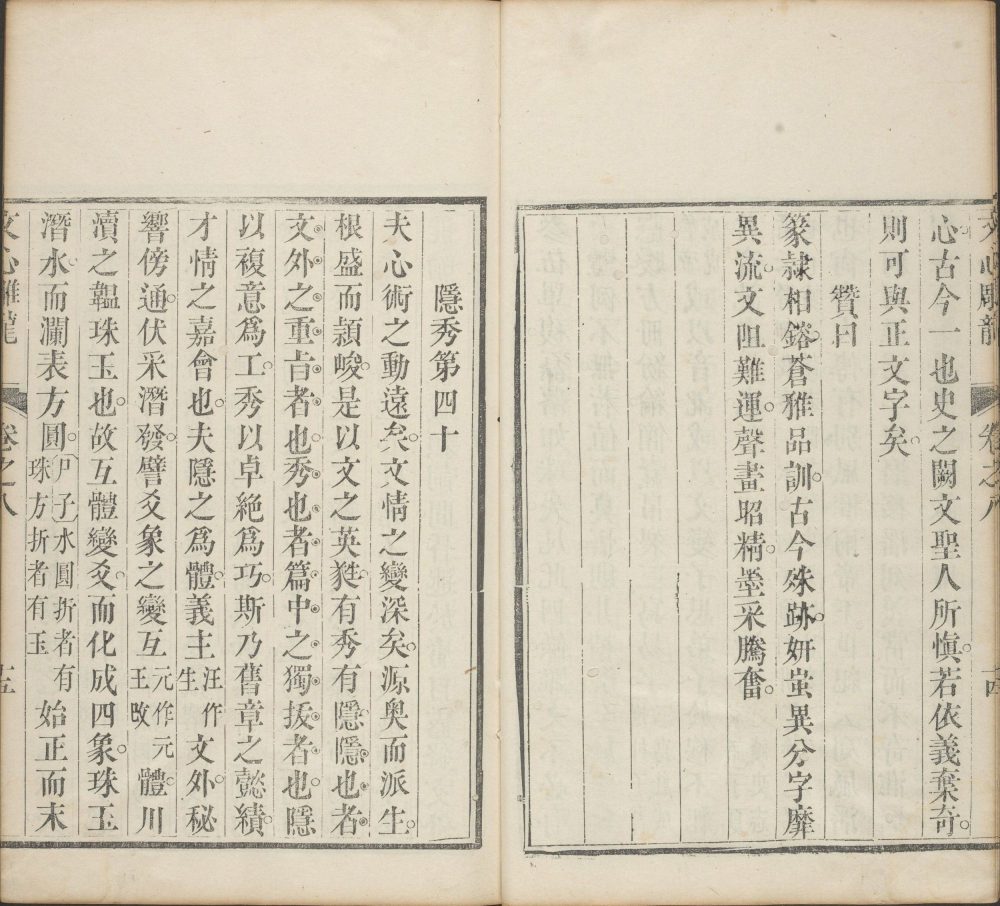 文心雕龍 卷之八 十四
心古今一也史之闕文聖人所愼若依義棄奇
則可與正文字矣
贊曰
篆隷相鎔蒼雅品訓古今殊跡妍蚩異分字靡
異流文阻難運聲畫昭精墨采騰奮
隱秀第四十
夫心術之動遠矣文情之變深矣源奧而派生
根盛而穎峻是以文之英㽔有秀有隱隱也者
文外之重旨者也秀也者篇中之獨拔者也隱
以複意爲工秀以卓絕爲巧斯乃舊章之懿績
才情之嘉會也夫隱之爲體義主汪作生文外秘
響傍通伏采潛發譬爻象之變互元作元王改體川
瀆之韞珠玉也故互體變爻而化成四象珠玉
潛水而瀾表方圓尸子水圓折者有珠方折者有玉始正而末
文心雕龍 卷之八 十五